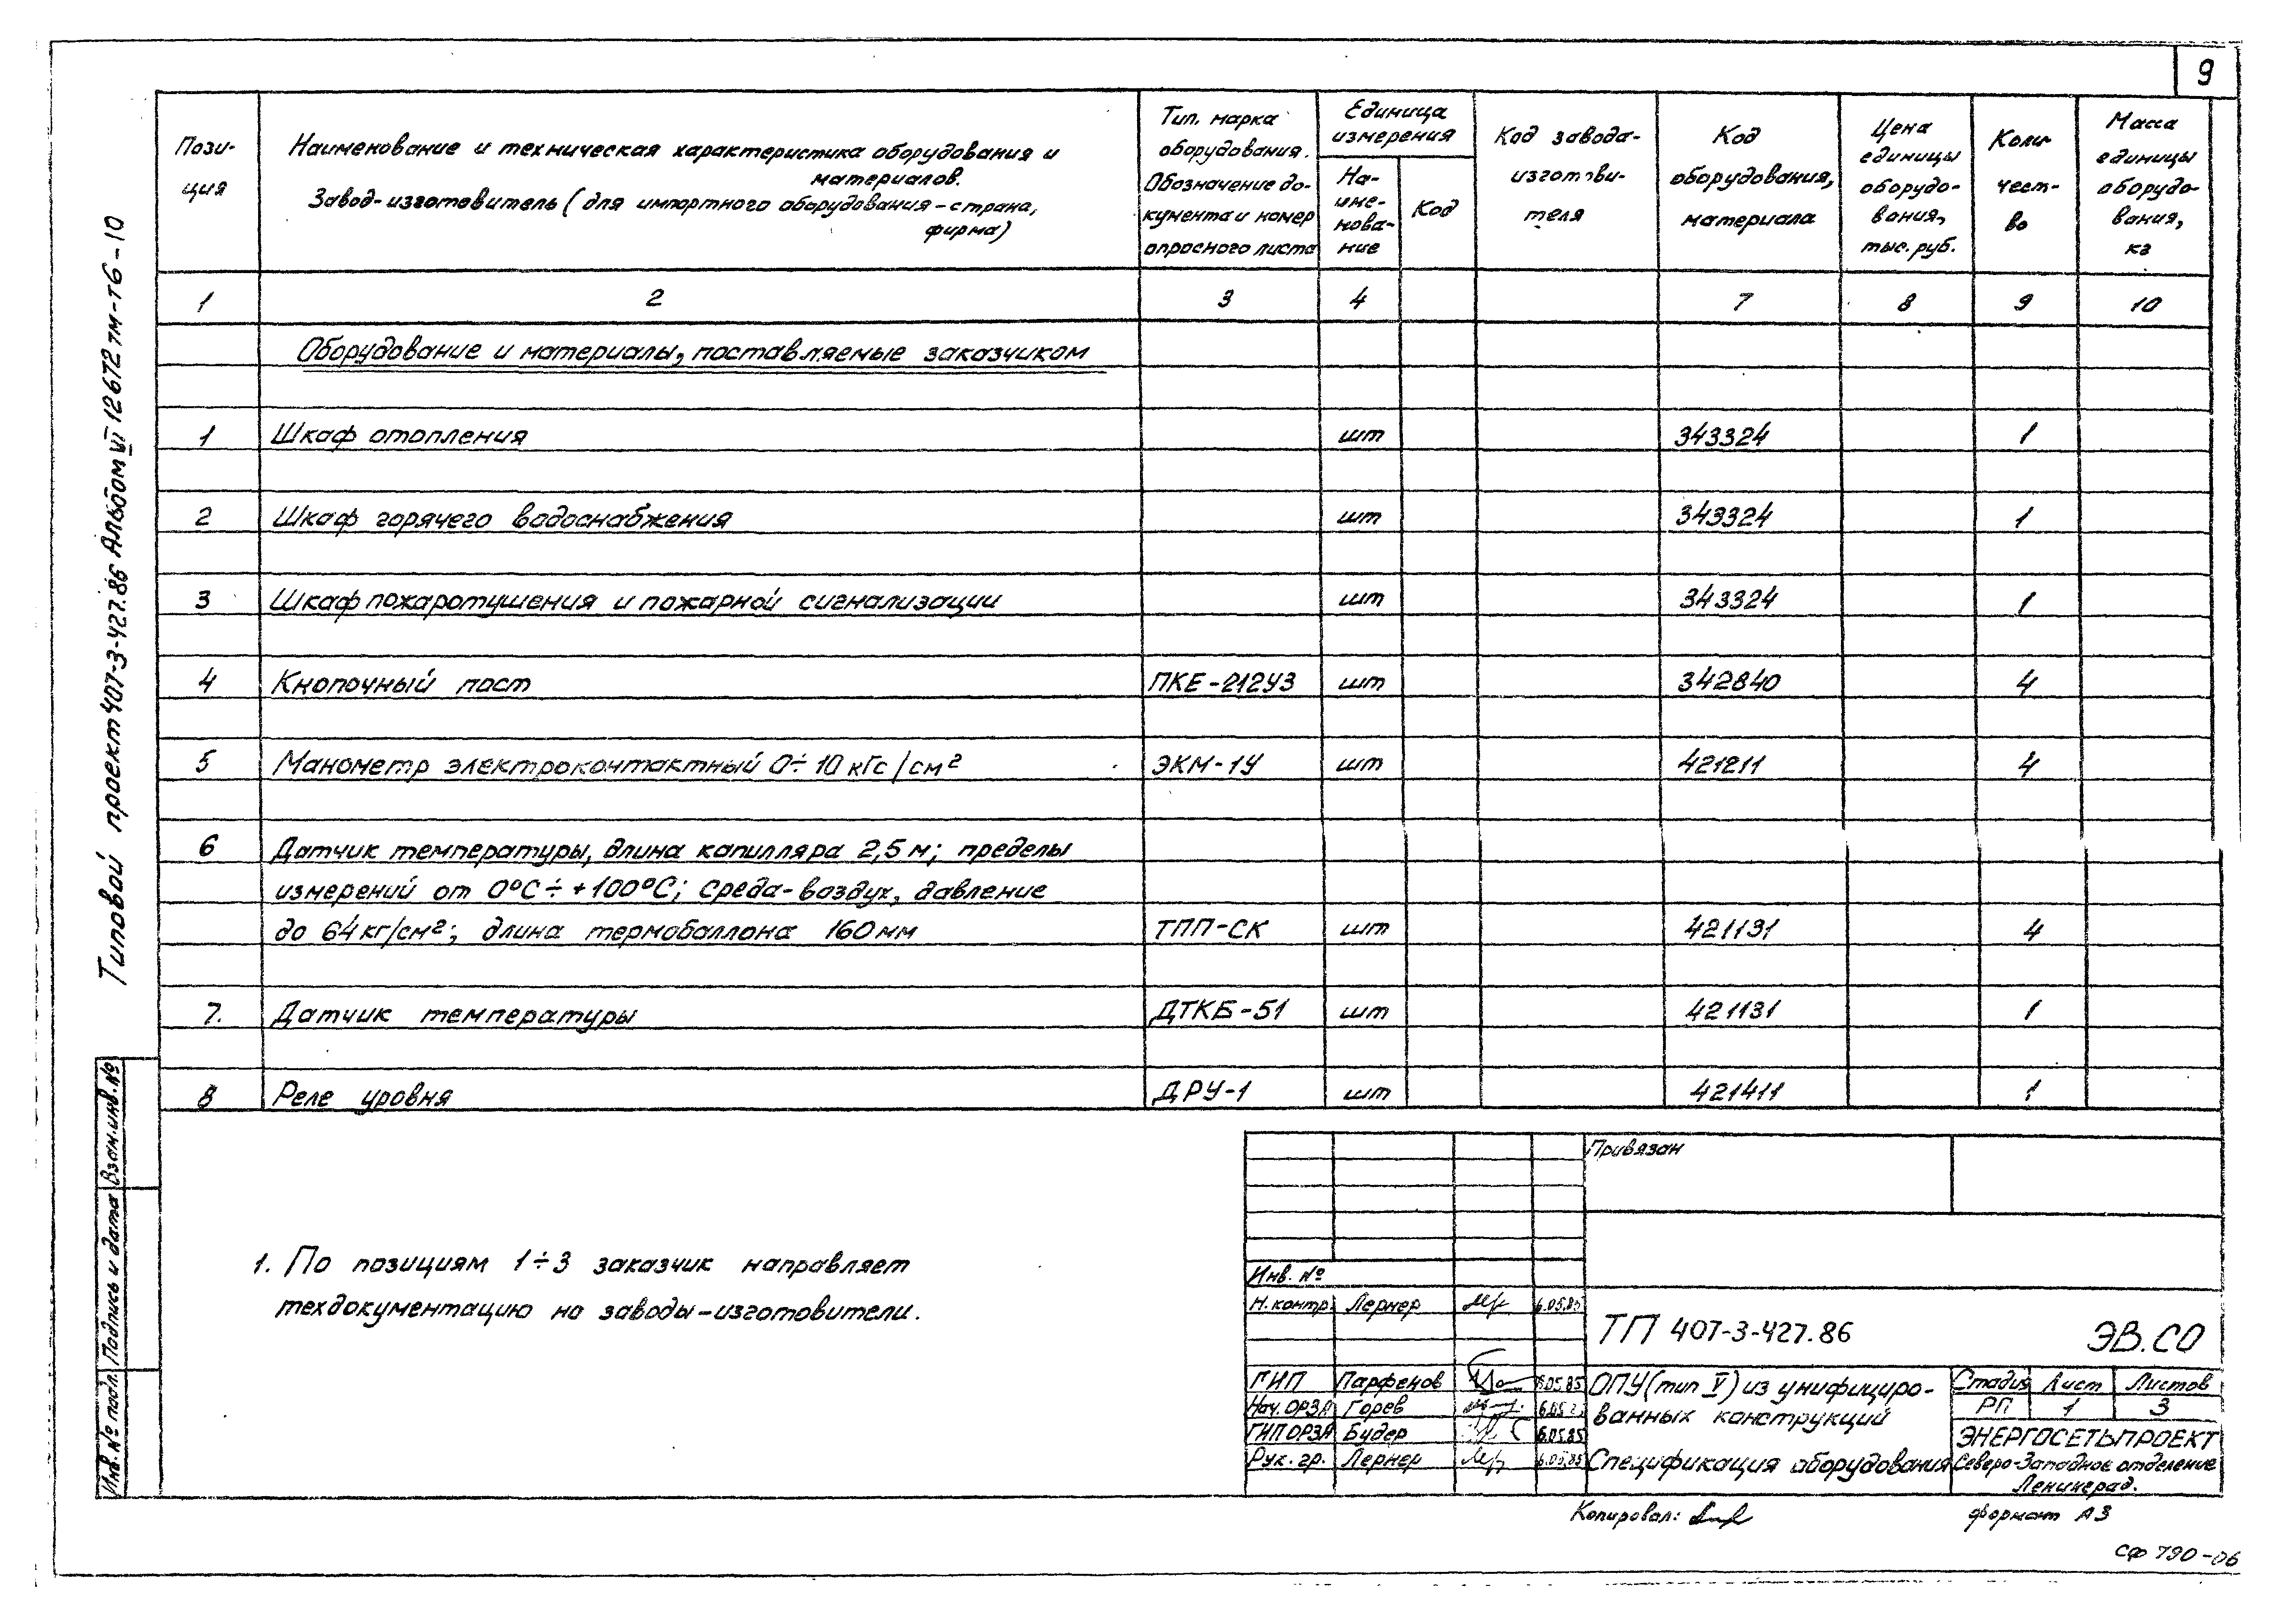 9
Пози-
ция
Наименование и техническая характеристика оборудования и
материалов.
Завод-изготовитель (для импортного оборудования-страна,
фирма)
Тип, марка
оборудования.
Обозначение до-
кумента и номер
опросного листа
Единица
измерения
На-
име-
нова-
ние
Код
Код завода-
изготови-
теля
Код
оборудования,
материала
Цена
единицы
оборудо-
вания,
тыс. руб.
Коли-
чест-
во
Масса
единицы
оборудо-
вания,
кг
1 2 3 4 7 8 9 10
Оборудование и материалы, поставляемые заказчиком
1 Шкаф отопления шт 343324 1
2 Шкаф горячего водоснабжения шт 343324 1
3 Шкаф пожаротушения и пожарной сигнализации шт 343324 1
4 Кнопочный пост ПКЕ-212У3 шт 342840 4
5 Манометр электроконтактный 0÷10 кГс/см² ЭКМ-1У шт 421211 4
6 Датчик температуры, длина капилляра 2,5 м; пределы
измерений от 0°С÷+100°С; среда-воздух, давление
до 64 кг/см²; длина термобаллона 160 мм ТПП-СК шт 421131 4
7. Датчик температуры ДТКБ-51 шт 421131 1
8 Реле уровня ДРУ-1 шт 421411 1
1. По позициям 1÷3 заказчик направляет
техдокументацию на заводы-изготовители.
Типовой проект 407-3-427.86 Альбом VI 12672тм-т6-10
Взам.инв.№
Подпись и дата
Инв.№ подл.
Привязан
Инв. №
Н.контр. Лернер 6.05.85
ТП 407-3-427.86 ЭВ.СО
ГИП Парфенов 6.05.85
Нач.ОРЗА Горев 6.05
ГИП ОРЗА Будер 6.05.85
Рук. гр. Лернер 6.05.85
ОПУ (тип V) из унифициро-
ванных конструкций
Спецификация оборудования
Стадия Лист Листов
РП 1 3
ЭНЕРГОСЕТЬПРОЕКТ
Северо-Западное отделение
Ленинград.
Копировал:
формат А3
СФ 790-06